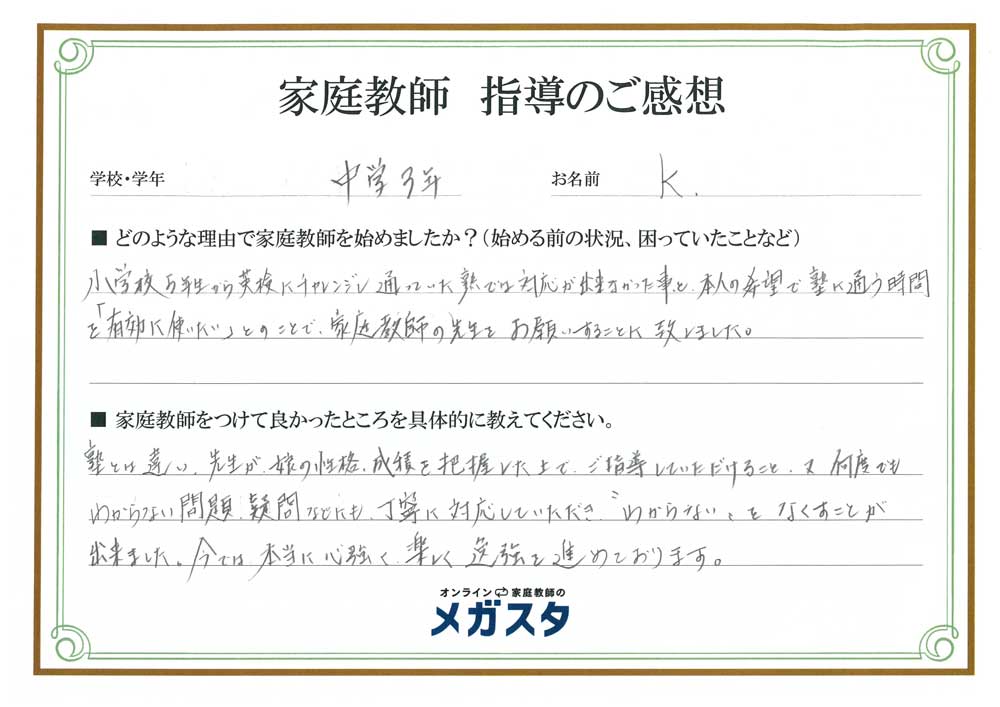 家庭教師 指導のご感想
学校・学年 中学3年 お名前 K.
■ どのような理由で家庭教師を始めましたか？（始める前の状況、困っていたことなど）
小学校5年生から英検にチャレンジし通っていた塾では対応が出来なかった事と、本人の希望で塾に通う時間
を「有効に使いたい」とのことで、家庭教師の先生を お願いすることに致しました。
■ 家庭教師をつけて良かったところを具体的に教えてください。
塾とは違い、先生が、娘の性格、成績を把握した上で、ご指導していただけること、又 何度でも
わからない問題、疑問などにも、丁寧に対応していただき、"わからない"を なくすことが
出来ました。今では 本当に心強く、楽しく 勉強を進めております。
オンライン 家庭教師の
メガスタ